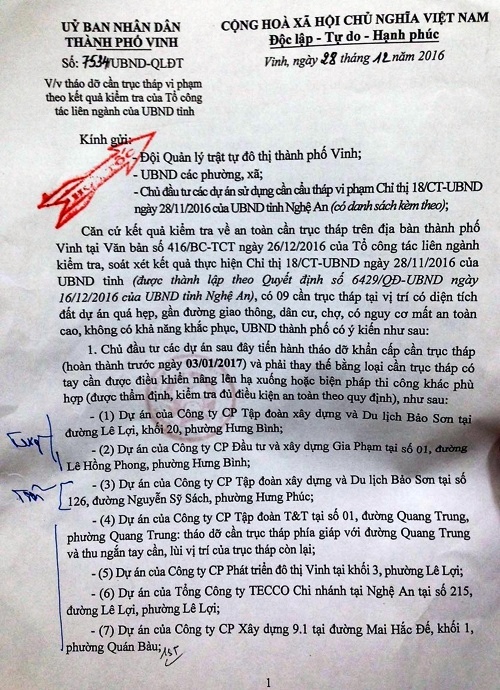 ỦY BAN NHÂN DÂN
THÀNH PHỐ VINH
Số: 7534/UBND-QLĐT
V/v tháo dỡ cần trục tháp vi phạm
theo kết quả kiểm tra của Tổ công
tác liên ngành của UBND tỉnh
CỘNG HOÀ XÃ HỘI CHỦ NGHĨA VIỆT NAM
Độc lập - Tự do - Hạnh phúc
Vinh, ngày 28 tháng 12 năm 2016
Kính gửi:
- Đội Quản lý trật tự đô thị thành phố Vinh;
- UBND các phường, xã;
- Chủ đầu tư các dự án sử dụng cần cẩu tháp vi phạm Chỉ thị 18/CT-UBND
ngày 28/11/2016 của UBND tỉnh Nghệ An (có danh sách kèm theo);
Căn cứ kết quả kiểm tra về an toàn cần trục tháp trên địa bàn thành phố
Vinh tại Văn bản số 416/BC-TCT ngày 26/12/2016 của Tổ công tác liên ngành
kiểm tra, soát xét kết quả thực hiện Chỉ thị 18/CT-UBND ngày 28/11/2016 của
UBND tỉnh (được thành lập theo Quyết định số 6429/QĐ-UBND ngày
16/12/2016 của UBND tỉnh Nghệ An), có 09 cần trục tháp tại vị trí có diện tích
đất dự án quá hẹp, gần đường giao thông, dân cư, chợ, có nguy cơ mất an toàn
cao, không có khả năng khắc phục, UBND thành phố có ý kiến như sau:
1. Chủ đầu tư các dự án sau đây tiến hành tháo dỡ khẩn cấp cần trục tháp
(hoàn thành trước ngày 03/01/2017) và phải thay thế bằng loại cần trục tháp có
tay cần được điều khiển nâng lên hạ xuống hoặc biện pháp thi công khác phù
hợp (được thẩm định, kiểm tra đủ điều kiện an toàn theo quy định), như sau:
- (1) Dự án của Công ty CP Tập đoàn xây dựng và Du lịch Bảo Sơn tại
đường Lê Lợi, khối 20, phường Hưng Bình;
- (2) Dự án của Công ty CP Đầu tư và xây dựng Gia Phạm tại số 01, đường
Lê Hồng Phong, phường Hưng Bình;
- (3) Dự án của Công ty CP Tập đoàn xây dựng và Du lịch Bảo Sơn tại số
126, đường Nguyễn Sỹ Sách, phường Hưng Phúc;
- (4) Dự án của Công ty CP Tập đoàn T&T tại số 01, đường Quang Trung,
phường Quang Trung: tháo dỡ cần trục tháp phía giáp với đường Quang Trung
và thu ngắn tay cần, lùi vị trí của trục tháp còn lại;
- (5) Dự án của Công ty CP Phát triển đô thị Vinh tại khối 3, phường Lê Lợi;
- (6) Dự án của Tổng Công ty TECCO Chi nhánh tại Nghệ An tại số 215,
đường Lê Lợi, phường Lê Lợi;
- (7) Dự án của Công ty CP Xây dựng 9.1 tại đường Mai Hắc Đế, khối 1,
phường Quán Bàu;
1